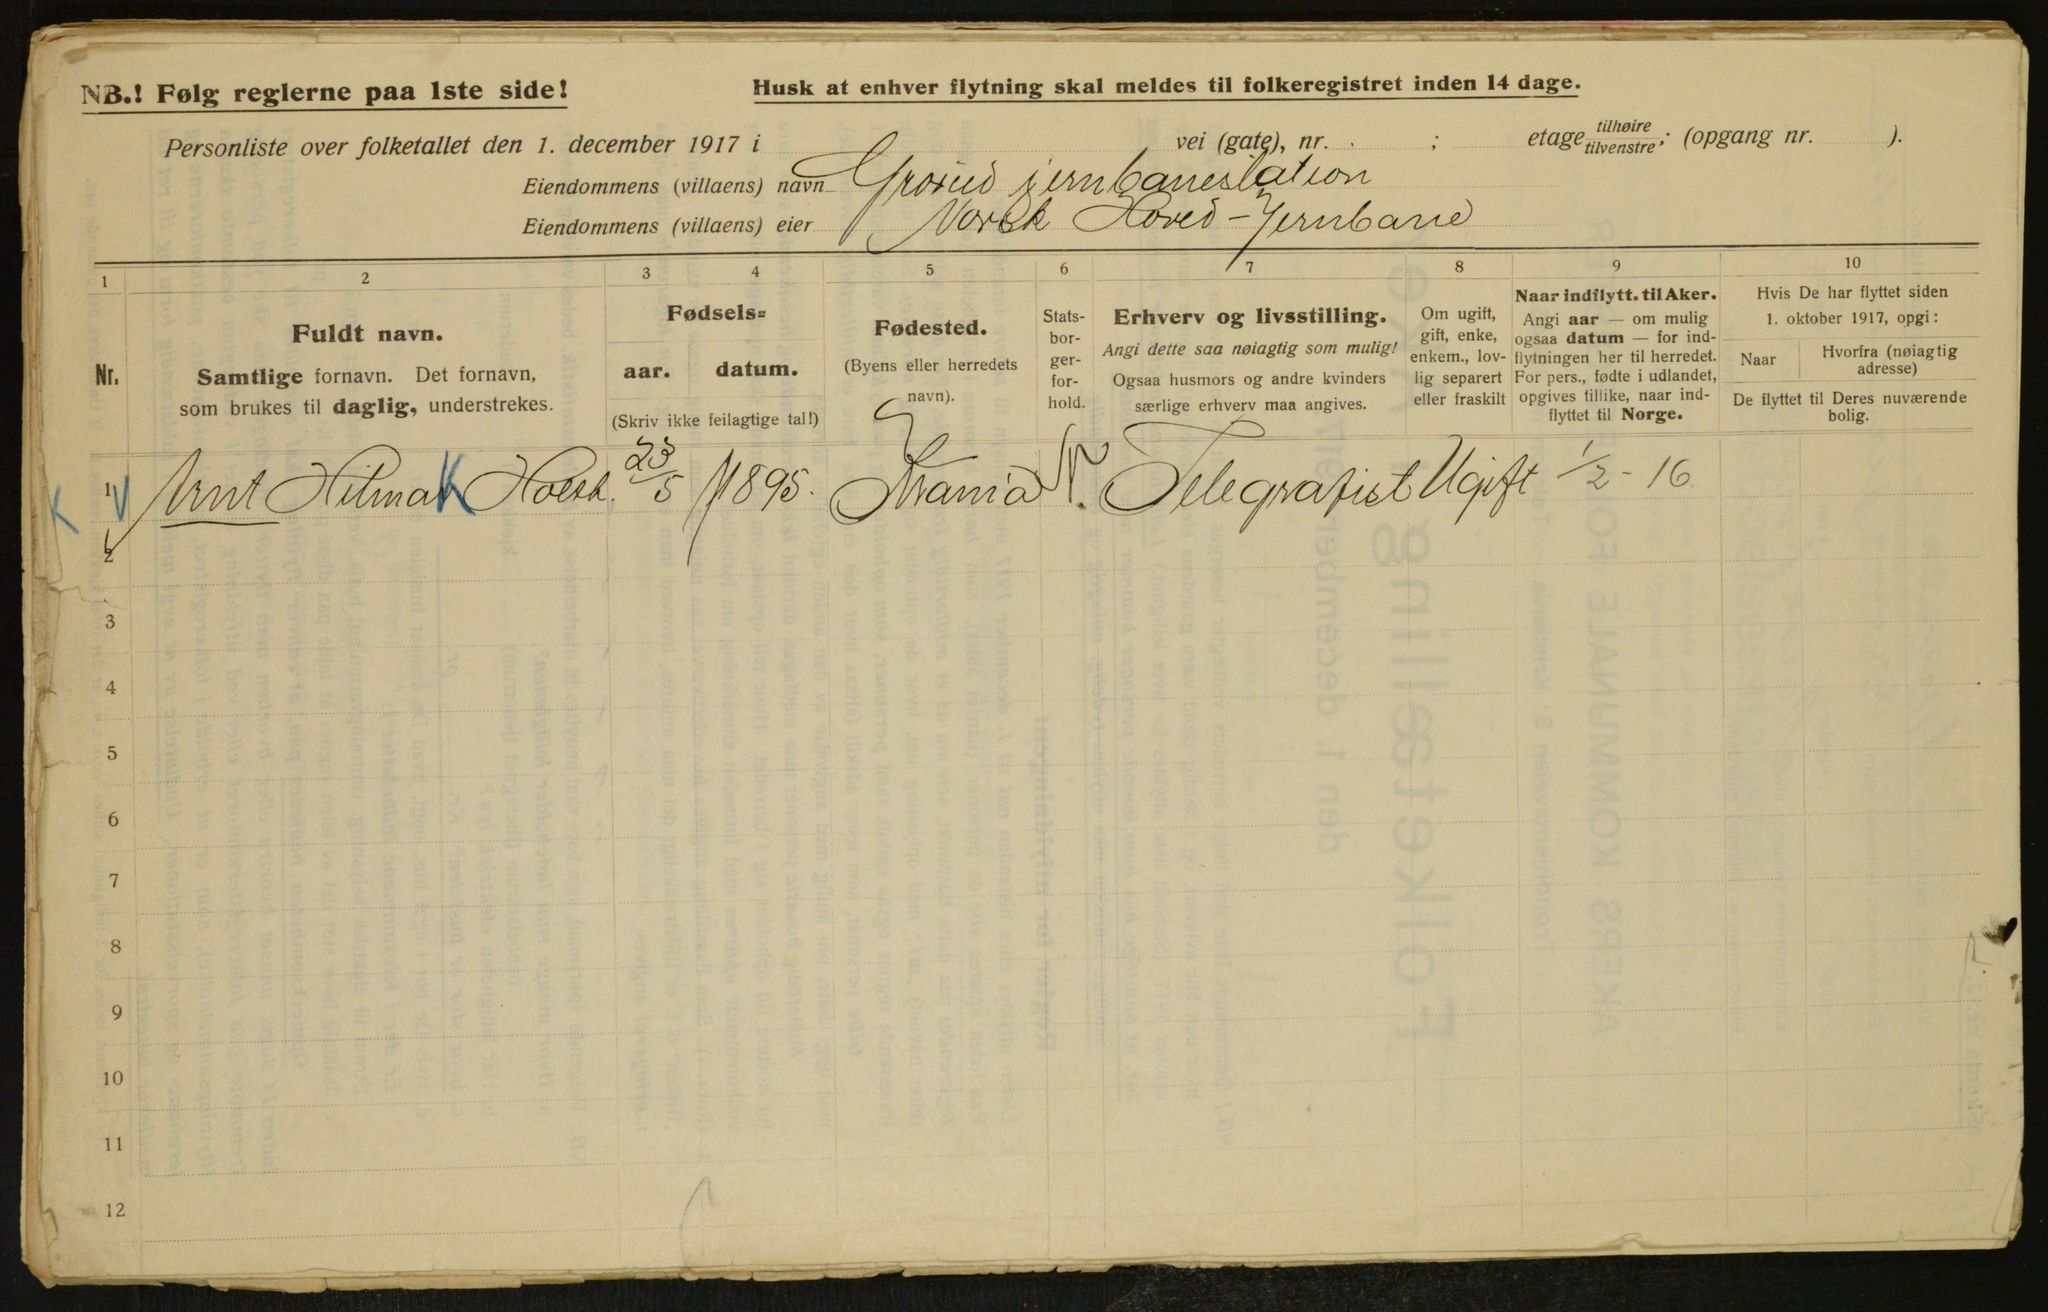 NB.! Følg reglerne paa 1ste side!
Husk at enhver flytning skal meldes til folkeregistret inden 14 dage.
Personliste over folketallet den 1. december 1917 i vei (gate), nr. ; etage tilhøire tilvenstre; (opgang nr. ).
Eiendommens (villaens) navn Grorud jernbanestation
Eiendommens (villaens) eier Norsk Hoved-Jernbane
1 2 3 4 5 6 7 8 9 10
Nr.
Fuldt navn.
Samtlige fornavn. Det fornavn,
som brukes til daglig, understrekes.
Fødsels=
aar. datum.
(Skriv ikke feilagtige tal!)
Fødested.
(Byens eller herredets
navn).
Stats-
bor-
ger-
for-
hold.
Erhverv og livsstilling.
Angi dette saa nøiagtig som mulig!
Ogsaa husmors og andre kvinders
særlige erhverv maa angives.
Om ugift,
gift, enke,
enkem., lov-
lig separert
eller fraskilt
Naar indflytt. til Aker.
Angi aar — om mulig
ogsaa datum — for ind-
flytningen her til herredet.
For pers., fødte i udlandet,
opgives tillike, naar ind-
flyttet til Norge.
Hvis De har flyttet siden
1. oktober 1917, opgi:
Naar
Hvorfra (nøiagtig
adresse)
De flyttet til Deres nuværende
bolig.
K V 1 Arnt Hilmar K 23/5 1895. Krania N. Telegrafist Ugift 1/2 - 16
2
3
4
5
6
7
8
9
10
11
12